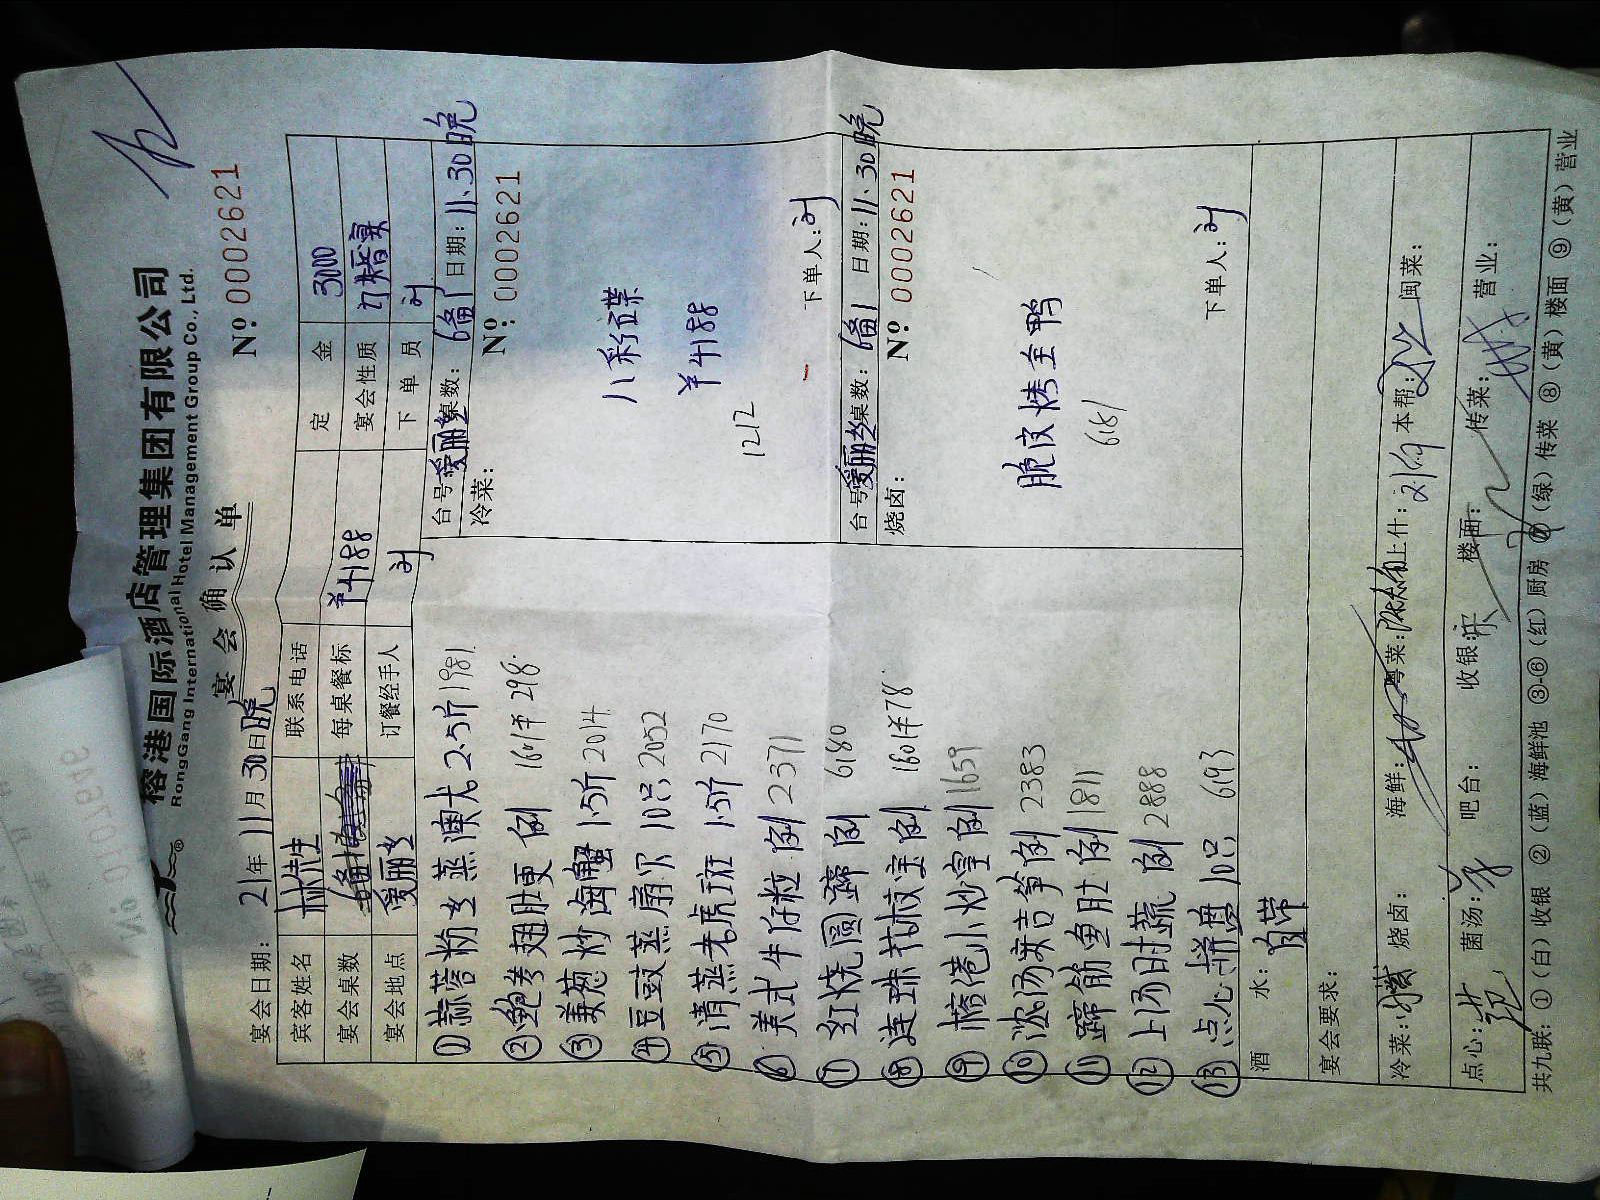 榕港国际酒店管理集团有限公司
RongGang International Hotel Management Group Co., Ltd.
宴会确认单
№ 0002621
宴会日期： 21年11月30日晚
宾客姓名 林先生 联系电话 定金 3000
宴会桌数 每桌餐标 ¥4188 宴会性质 订婚宴
宴会地点 爱丽丝 订餐经手人 刘 下单员 刘
①蒜蓉粉丝蒸澳龙2.5斤 1981
②鲍参翅肚羹 例 1601半298
③姜葱炒海蟹 1.5斤 2014
④豆豉蒸扇贝 10只 2052
⑤清蒸老虎斑 1.5斤 2170
⑥美式牛仔粒 例 2371
⑦红烧圆蹄 例 6180
⑧连珠扒板宝例 1601半78
⑨榕港小炒皇 例 1659
⑩浓汤娄吉笋 例 2383
⑪蹄筋鱼肚 例 1811
⑫上汤时蔬 例 2888
⑬点心拼盘10只 6193
台号爱丽丝桌数：6备1 日期：11.30晚
冷菜： № 0002621
八彩碟
¥4188
1212
下单人：刘
台号爱丽丝桌数：6备1 日期：11.30晚
烧卤： № 0002621
脆皮烤全鸭
6151
下单人：刘
酒水： 自带
宴会要求：
冷菜： 烧卤： 海鲜： 粤菜： 上什： 本帮： 闽菜：
点心： 菌汤： 吧台： 收银： 宋 楼面： 传菜： 营业：
共九联：①（白）收银 ②（蓝）海鲜池 ③-⑥（红）厨房 ⑦（绿）传菜 ⑧（黄）楼面 ⑨（黄）营业